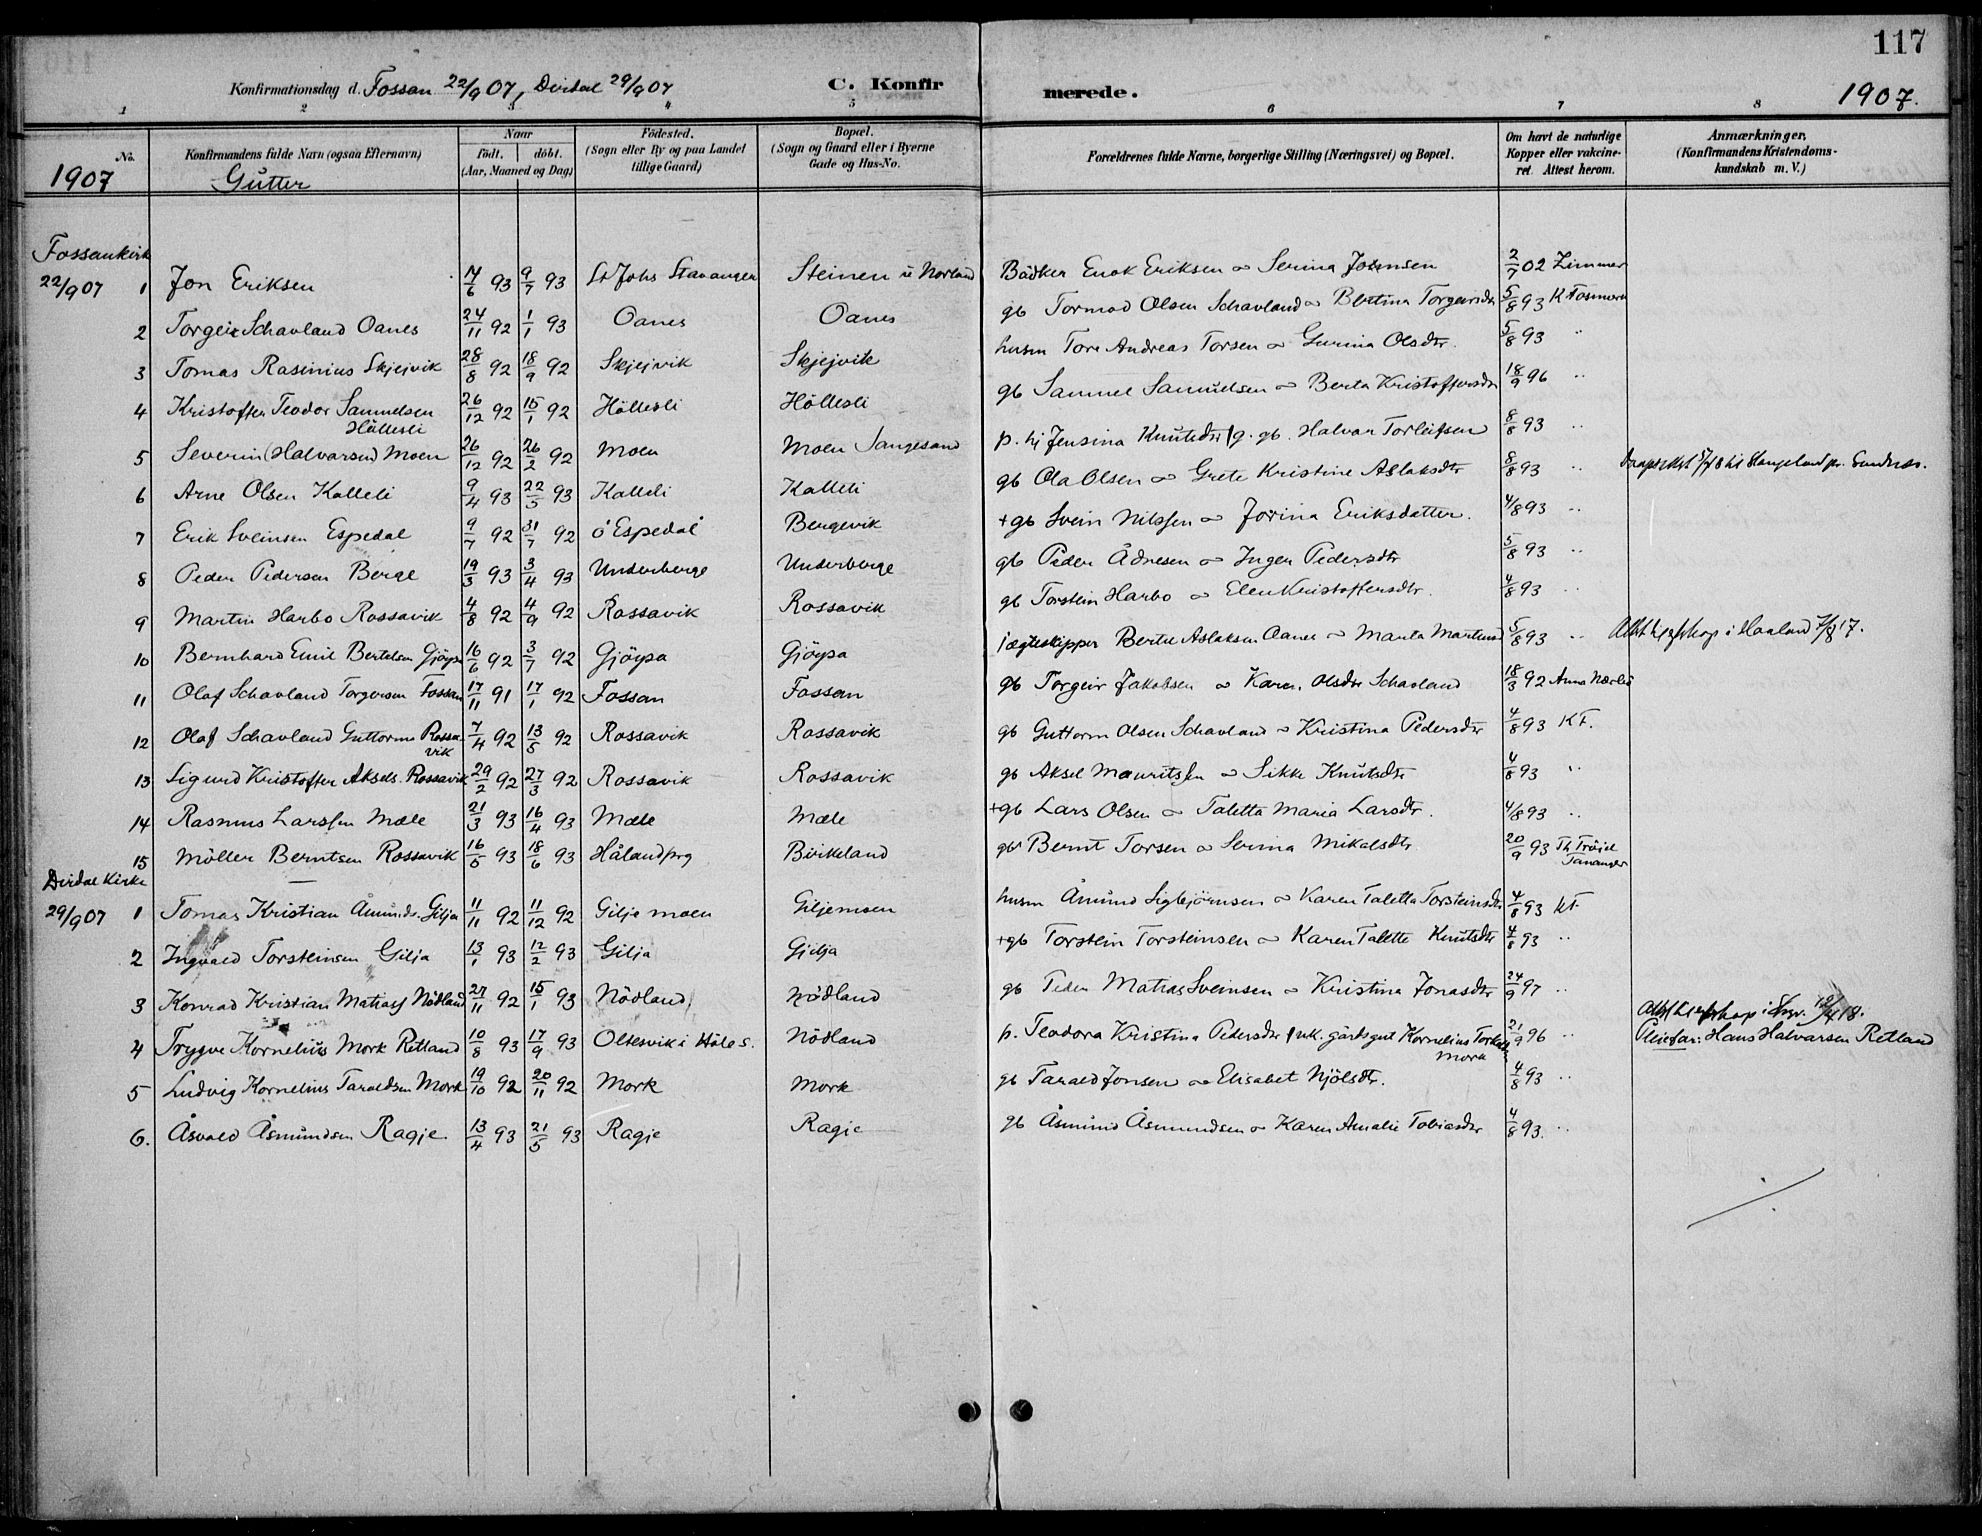 117
Konfirmationsdag d. Fossan 22/9 07, Dirdal 29/9 07 C. Konfirmerede. 1907.
1 2 3 4 5 6 7 8
No. Konfirmandens fulde Navn (ogsaa Efternavn) Naar födt. döbt. (Aar, Maaned og Dag) Födested. (Sogn eller By og paa Landet tillige Gaard) Bopæl. (Sogn og Gaard eller i Byerne Gade og Hus-No. Forældrenes fulde Navne, borgerlige Stilling (Næringsvei) og Bopæl. Om havt de naturlige Kopper eller vakcineret. Attest herom. Anmærkninger. (Konfirmandens Kristendomskundskab m. V.)
1907 Gutter
Fossankirk
22/9 07 1 Jon Eriksen 14/6 93 9/7 93 St Johs Stavanger Steinen u Norland Bödker Enok Eriksen og Serina Johnsen 2/7 02 Zimmer
2 Torgeir Schavland Oanes 24/11 92 1/1 93 Oanes Oanes gb Tormod Olsen Schavland og Bertina Torgeirsdtr 5/8 93 K Fosmark
3 Tomas Rasinius Skjejvik 28/8 92 18/9 92 Skjejvik Skjejvik husm Tore Andreas Torsen og Gurina Olsdtr. 5/8 93 "
4 Kristoffer Teodor Samuelsen Höllesli 26/12 92 15/1 92 Höllesli Höllesli gb Samuel Samuelsen og Berta Kristoffersdtr 18/9 96 "
5 Severin (Halvarsen) Moen 26/12 92 26/2 92 Moen Moen Sangesand p. hj Jensina Knutsdtr / g. gb. Halvar Torleifsen 8/8 93 "
6 Arne Olsen Kalleli 9/4 93 22/5 93 Kalleli Kalleli gb Ola Olsen og Grete Kristine Aslaksdtr 8/8 93 "
7 Erik Sveinsen Espedal 9/7 92 31/7 92 ö Espedal Bergevik + gb Svein Nilssen og Jorina Eriksdatter. 4/8 93 "
8 Peder Pedersen Berge 19/3 93 3/4 93 Underberge Underberge gb Peder Ådnesen og Inger Pedersdtr 5/8 93 "
9 Martin Harbo Rossavik 4/8 92 4/9 92 Rossavik Rossavik gb Torstein Harbo og Elen Kristoffersdtr. 4/8 93 "
10 Bernhard Emil Bertelsen Gjöysa 16/6 92 3/7 92 Gjöysa Gjöysa jægteskipper Bertel Aslaksen Oanes og Marta Martinsd 5/8 93 " Attst t egteskap i Haaland 7/8 17.
11 Olaf Schavland Torgersen Fossan 17/11 91 17/1 92 Fossan Fossan gb Torgeir Jakobsen og Karen Olsdtr Schavland 18/3 92 Anna Nærbö
12 Olaf Schavland Guttorms Rossavik 7/4 92 13/5 92 Rossavik Rossavik gb Guttorm Olsen Schavland og Kristina Pedersdtr 4/8 93 KF.
13 Sigurd Kristoffer Aksels. Rossavik 29/2 92 27/3 92 Rossavik Rossavik gb Aksel Mauritssen og Sikke Knutsdtr 4/8 93 "
14 Rasmus Larssen Mæle 21/3 93 16/4 93 Mæle Mæle + gb Lars Olsen og Taletta Maria Larsdtr. 4/8 93 "
15 Möller Berntsen Rossavik 16/5 93 18/6 93 Hålandprg Birkeland gb Bernt Torsen og Serina Mikalsdtr 20/9 93 Th Tananger
Dirdal Kirke
29/9 07 1 Tomas Kristian Åmunds. Gilja 11/11 92 11/12 92 Gilje moen Giljemoen husm Åmund Sigbjörnsen og Karen Taletta Torsteinsdtr 4/8 93 KF.
2 Ingvald Torsteinsen Gilja 13/1 93 12/2 93 Gilja Gilja + gb Torstein Torsteinsen og Karen Talette Knutsdtr 4/8 93 "
3 Konrad Kristian Matiass Nödland 27/11 92 15/1 93 Nödland Nödland gb Peder Matias Sveinsen og Kristina Jonasdtr 24/9 97 "
4 Trygve Kornelius Mork Retland 10/8 93 17/9 93 Oltesvik i Höles. Nödland p. Teodora Kristina Pedersdtr / uk. gårdsgut Kornelius Mork 21/9 96 " Pleiefar: Hans Halvarsen Retland
5 Ludvig Kornelius Taraldsen Mork 19/10 92 20/11 92 Mork Mork gb Tarald Jonsen og Elisabet Njölsdtr. 4/8 93 "
6. Åsvald Åsmundsen Ragje 13/4 93 21/5 93 Ragje Ragje gb Åsmund Åsmundsen og Karen Amalie Tobiasdtr 4/8 93. "